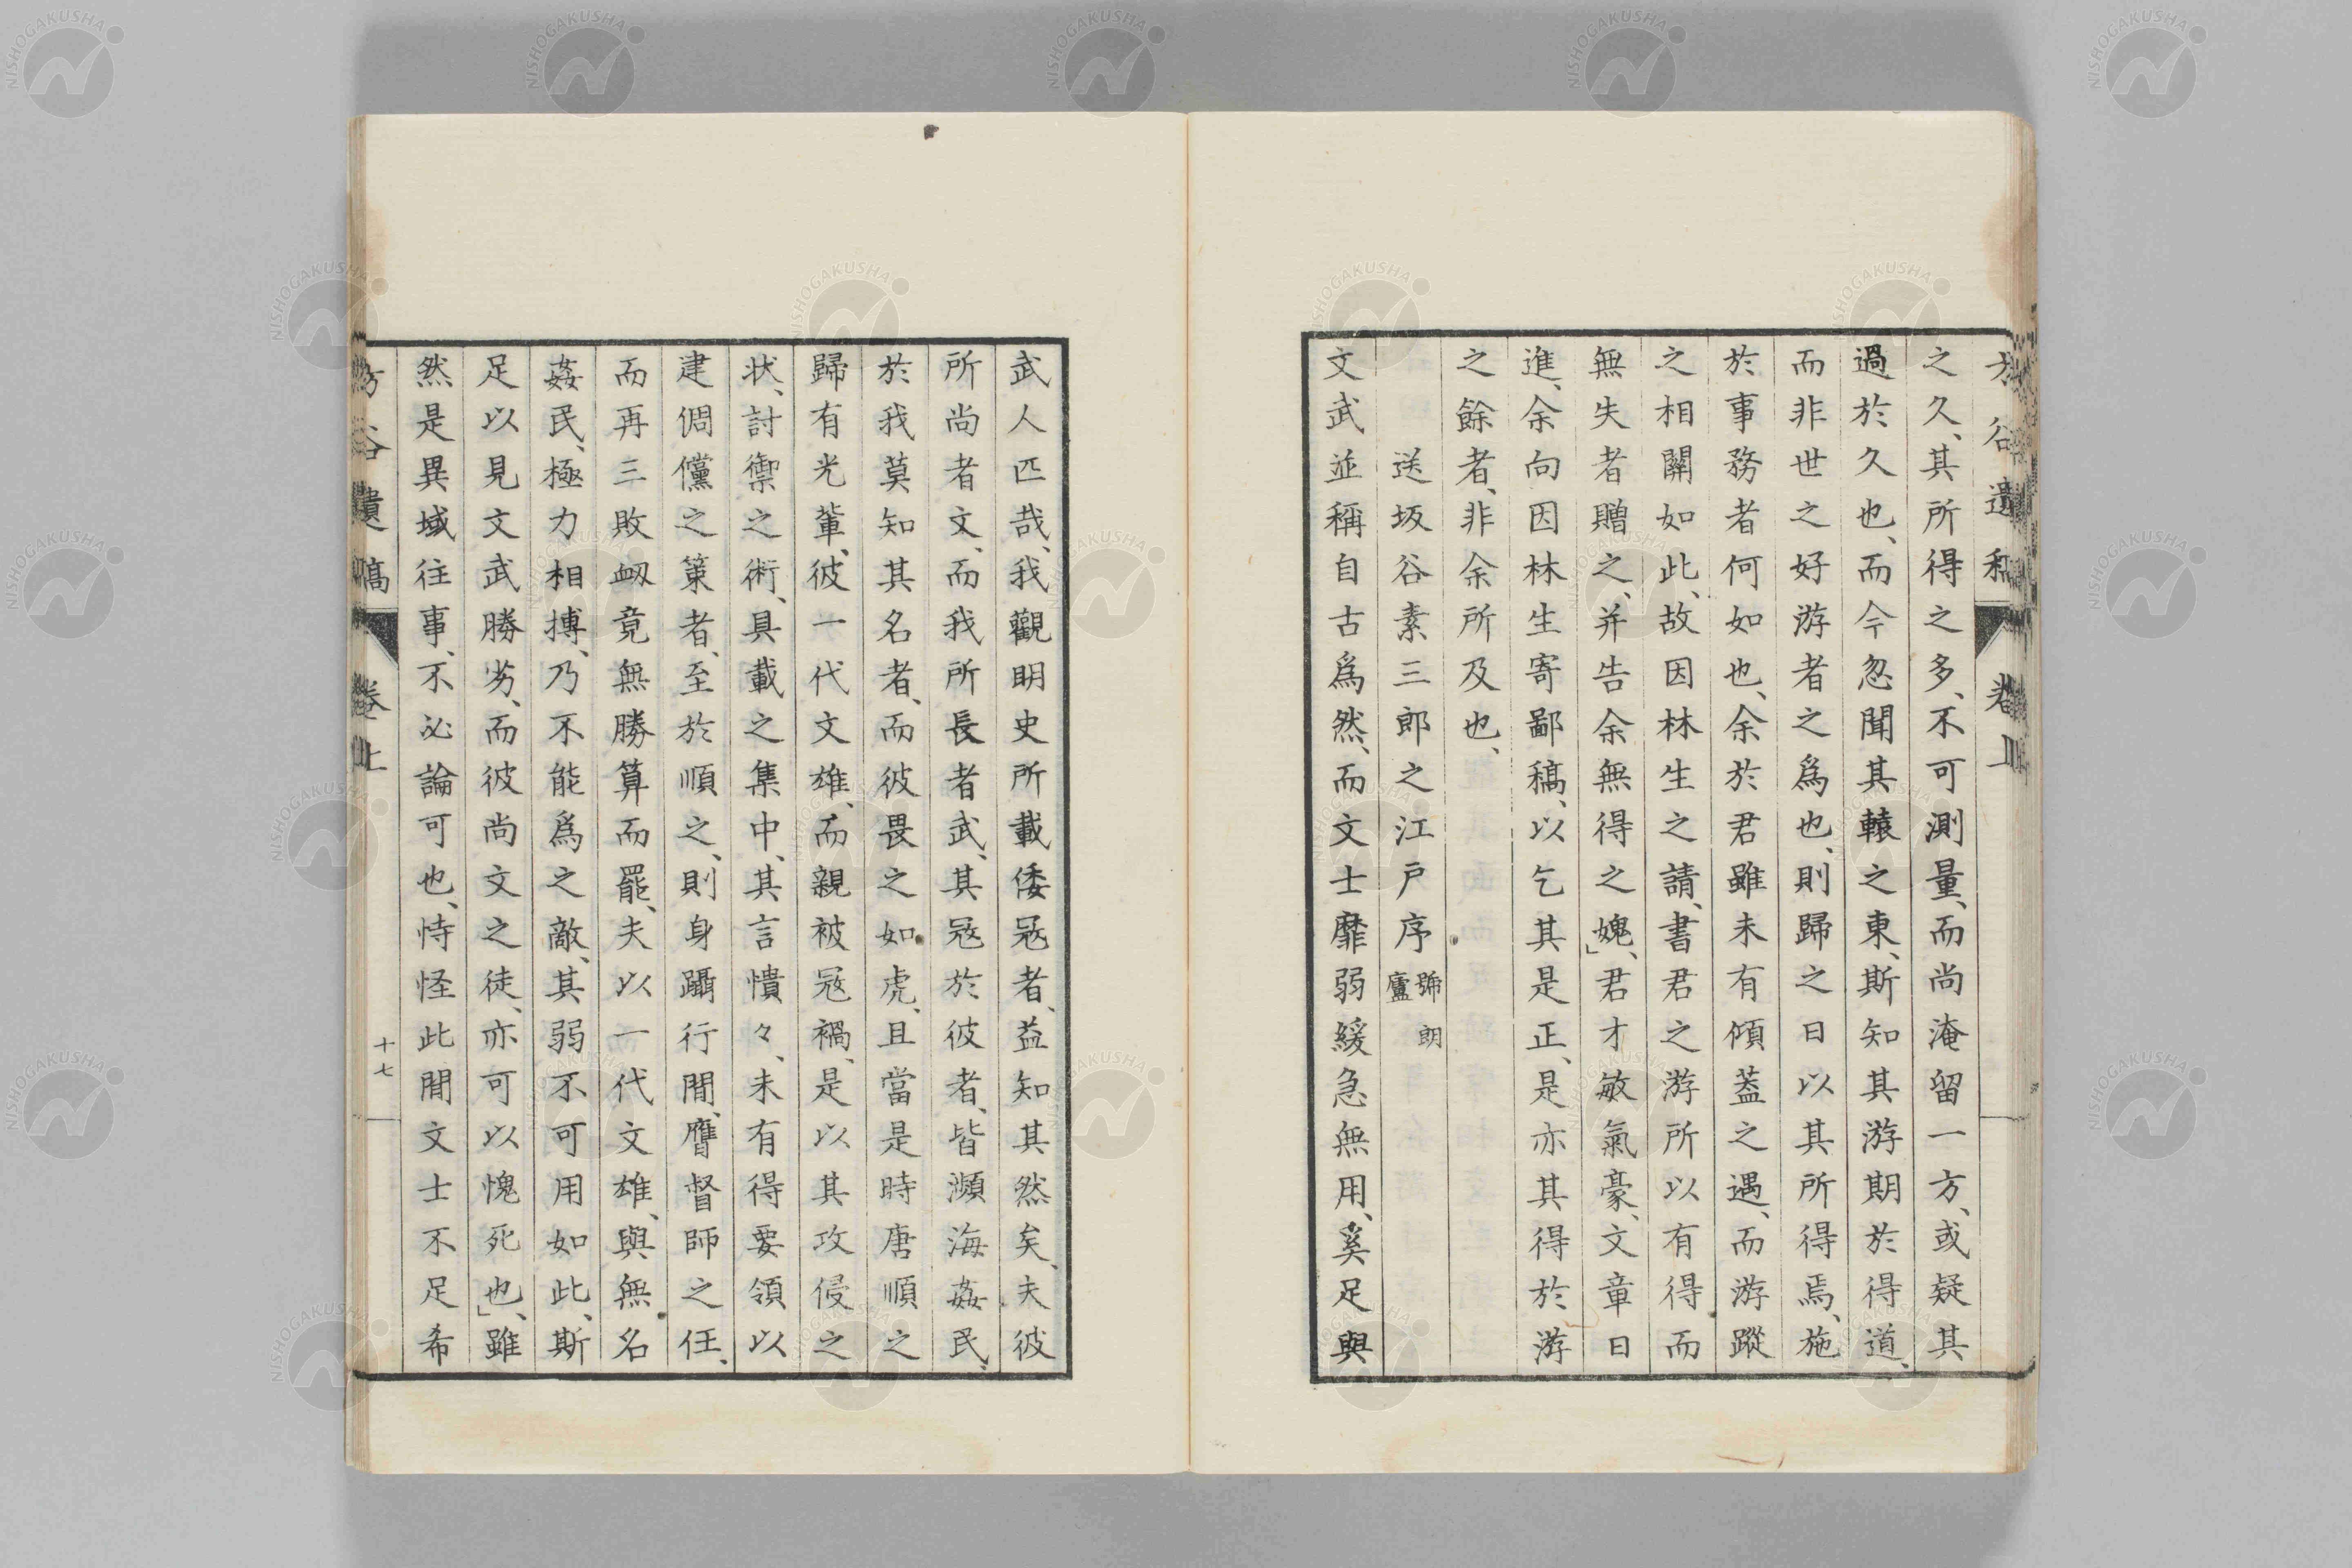 之久、其所得之多、不可測量、而尚淹留一方、或疑其
過於久也、而今忽聞其轅之東、斯知其游期於得道、
而非世之好游者之爲也、則歸之日以其所得焉、施
於事務者何如也、余於君雖未有傾葢之遇、而游蹤
之相關如此、故因林生之請、書君之游所以有得而
無失者贈之、并告余無得之媿、」君才敏氣豪、文章日
進、余向因林生寄鄙稿、以乞其是正、是亦其得於游
之餘者、非余所及也、
送坂谷素三郎之江戸序 號朗廬
文武並稱自古爲然、而文士靡弱緩急無用、奚足與
武人匹哉、我觀明史所載倭冦者、益知其然矣、夫彼
所尚者文、而我所長者武、其冦於彼者、皆瀕海姦民、
於我莫知其名者、而彼畏之如虎、且當是時唐順之
歸有光輩、彼一代文雄、而親被冦禍、是以其攻侵之
状、討禦之術、具載之集中、其言憒々、未有得要領以
建倜儻之策者、至於順之、則身躡行間、膺督師之任、
而再三敗衂竟無勝算而罷、夫以一代文雄、與無名
姦民、極力相搏、乃不能爲之敵、其弱不可用如此、斯
足以見文武勝劣、而彼尚文之徒、亦可以愧死也、」雖
然是異域往事、不必論可也、恃怪此間文士不足希
谷遺稿 卷上 十七